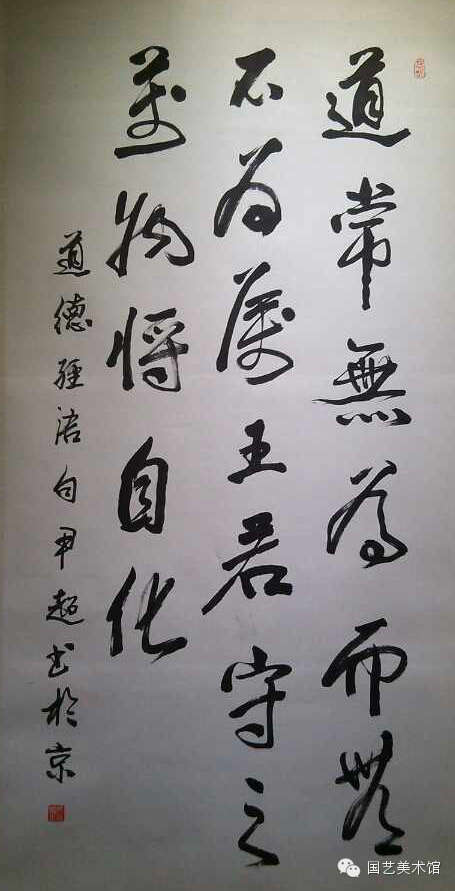 道常無為而無
不為侯王若守之
萬物將自化
道德經語句 超书於京
国艺美术馆